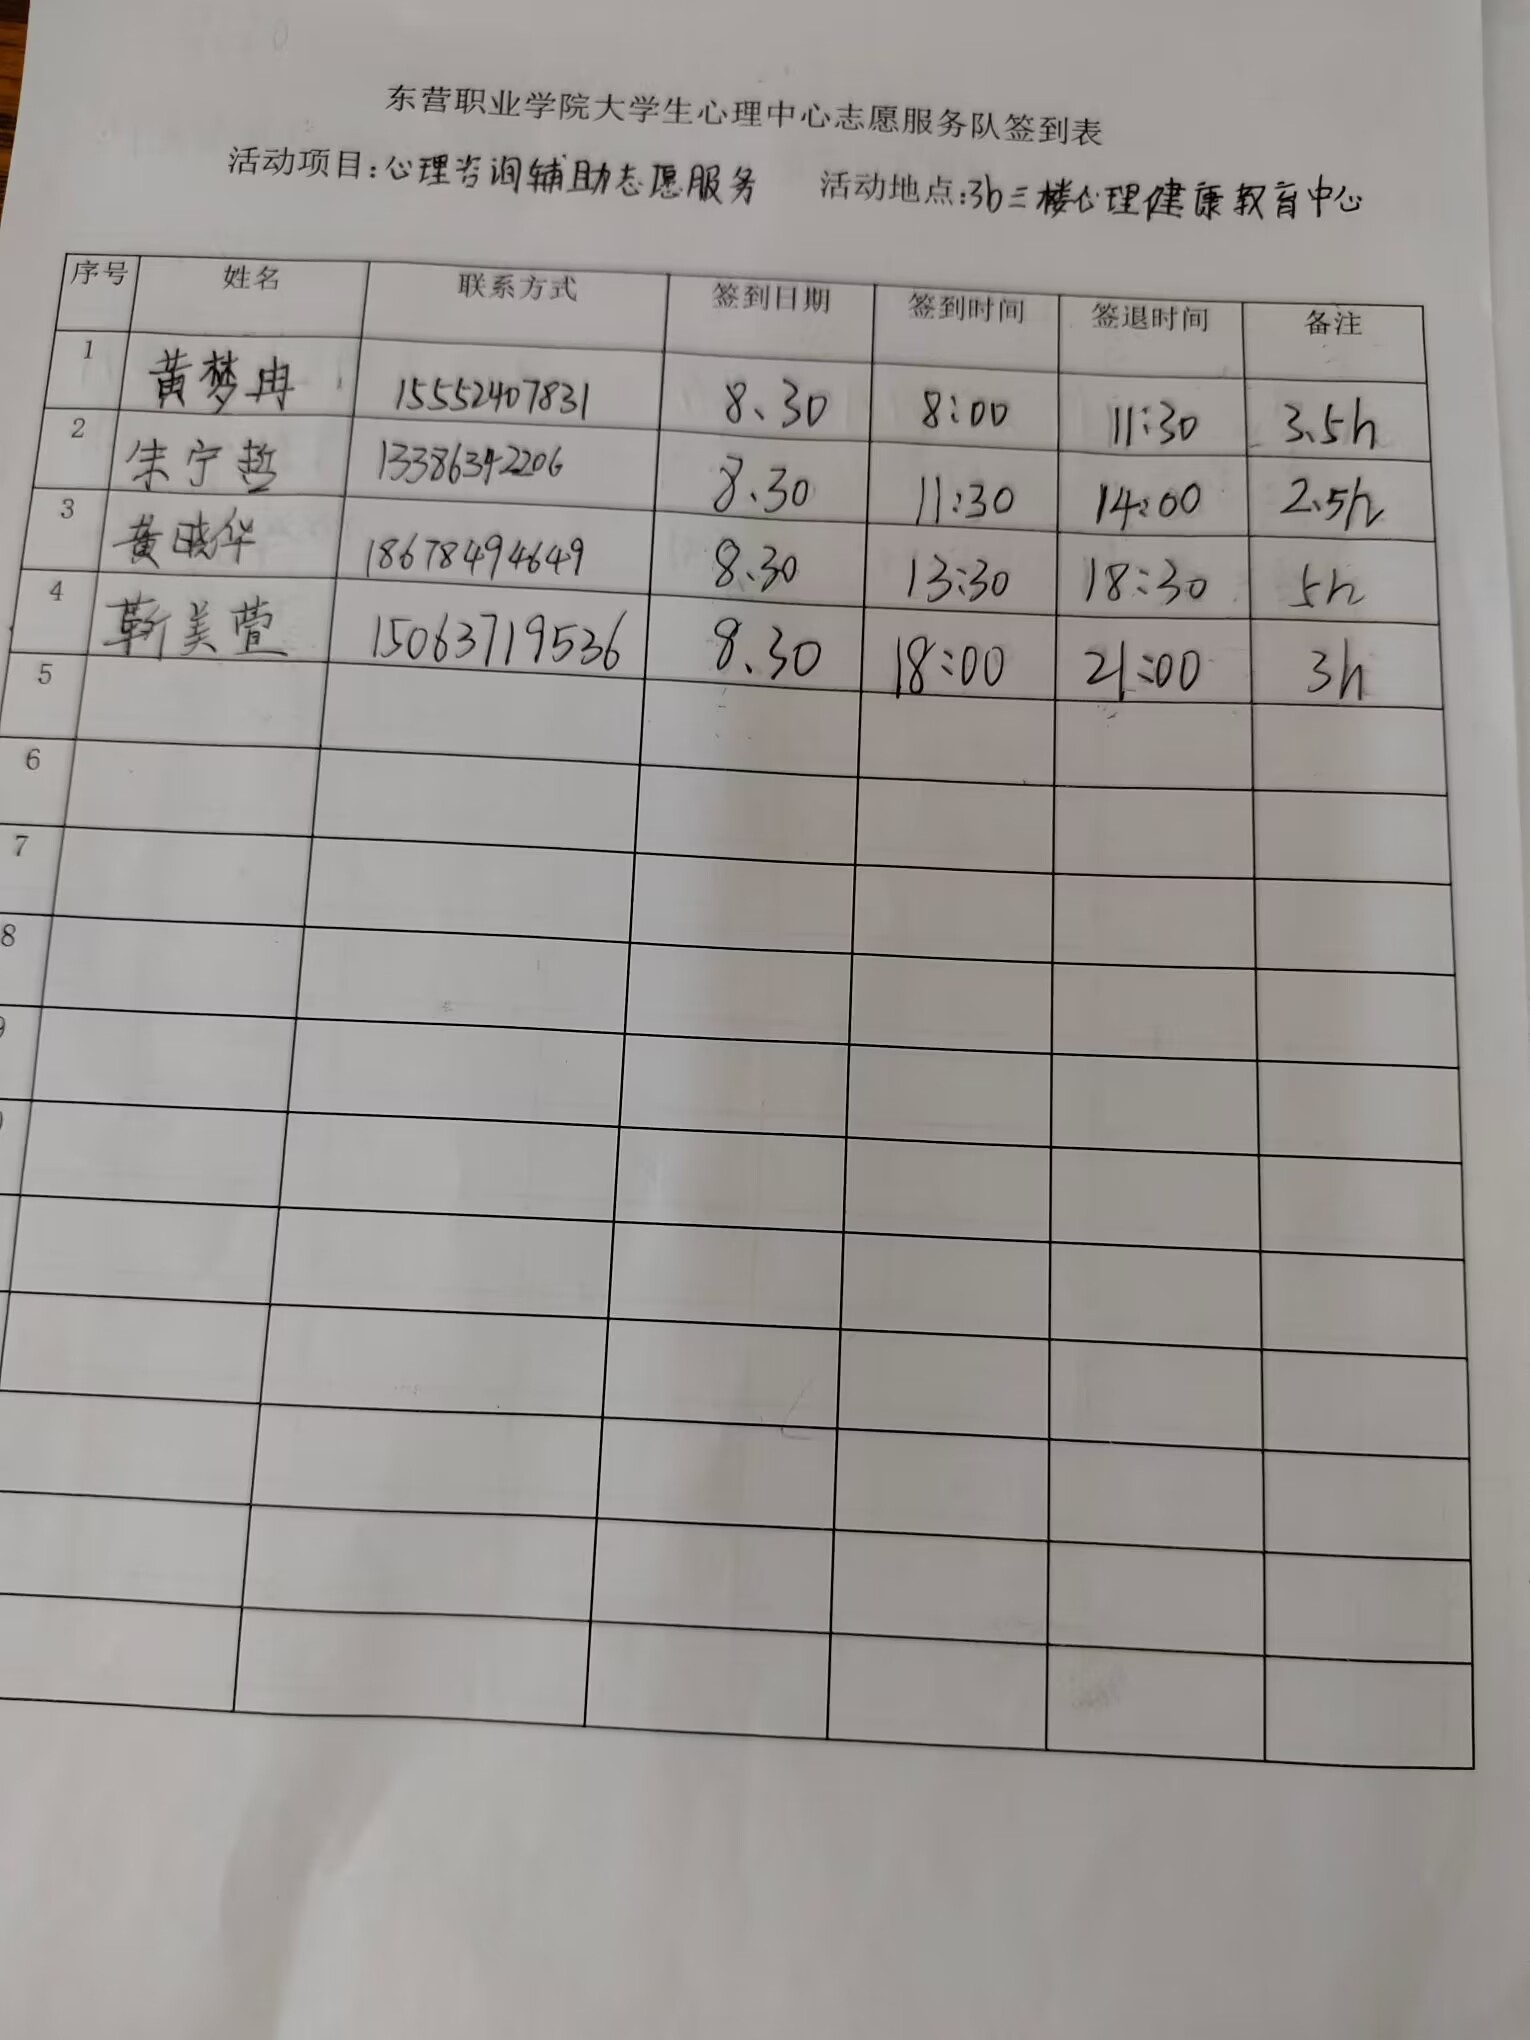 东营职业学院大学生心理中心志愿服务队签到表
活动项目:心理咨询辅助志愿服务 活动地点:3b三楼心理健康教育中心
序号 姓名 联系方式 签到日期 签到时间 签退时间 备注
1 黄梦冉 15552407831 8.30 8:00 11:30 3.5h
2 朱宁哲 13386342206 8.30 11:30 14:00 2.5h
3 黄晓华 18678494649 8.30 13:30 18:30 5h
4 靳美萱 15063719536 8.30 18:00 21:00 3h
5
6
7
8
9